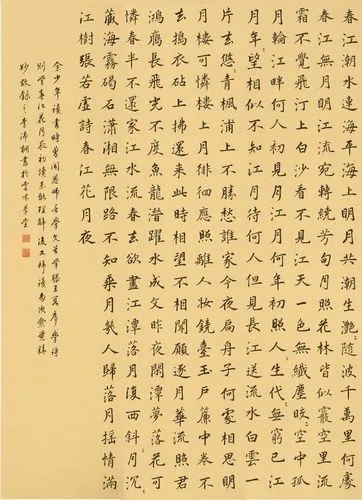 春江潮水連海平海上明月共潮生灩隨波千萬里何處
春江無月明江流宛轉繞芳甸月照花林皆似霰空裏流
霜不覺飛汀上白沙看不見江天一色無纖塵皎空中孤
月輪江畔何人初見月江月何年初照人生代無窮已江
月年望相似不知江月待何人但見長江送流水白雲一
片去悠青楓浦上不勝愁誰家今夜扁舟子何處相思明
月樓可憐樓上月徘徊應照離人妝鏡臺玉戶簾中卷不
去搗衣砧上拂還來此時相望不相聞願逐月華流照君
鴻雁長飛光不度魚龍潛躍水成文昨夜閑潭夢落花可
憐春半不還家江水流春去欲盡江潭落月復西斜月沉
藏海霧碣石瀟湘無限路不知乘月幾人歸落月搖情滿
江樹張若虛詩春江花月夜
余少年讀書時曾聞恩師言學文必學滕王閣序學詩
別學春江花月夜初讀未能理解後又拜讀
妙故錄之李沛書於雲林草堂